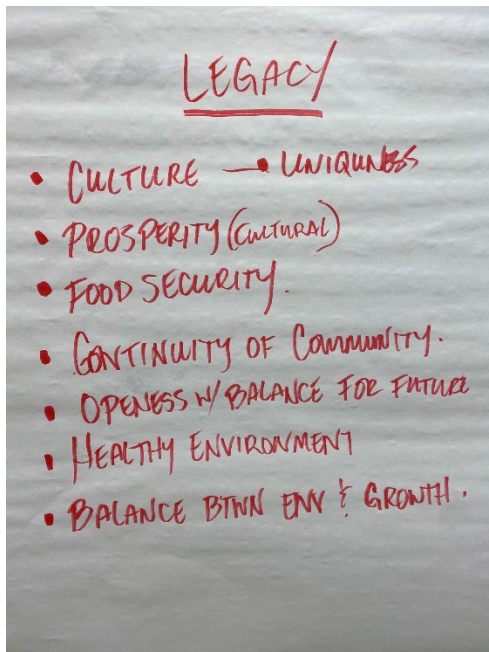 LEGACY
• CULTURE —• UNIQUNESS
• PROSPERITY (CULTURAL)
• FOOD SECURITY.
• CONTINUITY OF COMMUNITY.
• OPENESS W/ BALANCE FOR FUTURE
• HEALTHY ENVIRONMENT
• BALANCE BTWN ENV & GROWTH.